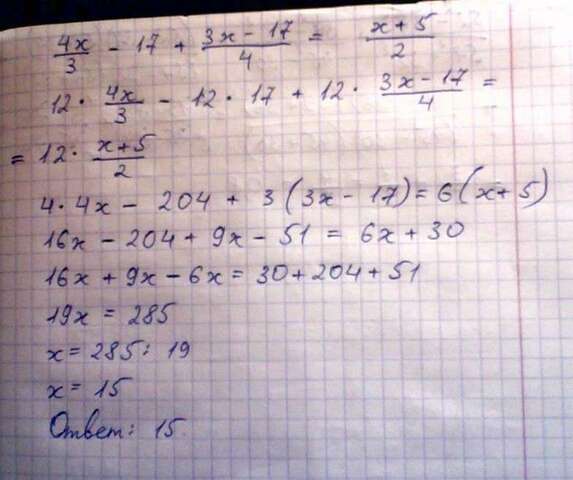 4x/3 - 17 + (3x - 17)/4 = (x + 5)/2
12 · 4x/3 - 12 · 17 + 12 · (3x - 17)/4 =
= 12 · (x + 5)/2
4 · 4x - 204 + 3(3x - 17) = 6(x + 5)
16x - 204 + 9x - 51 = 6x + 30
16x + 9x - 6x = 30 + 204 + 51
19x = 285
x = 285 : 19
x = 15
Ответ: 15.